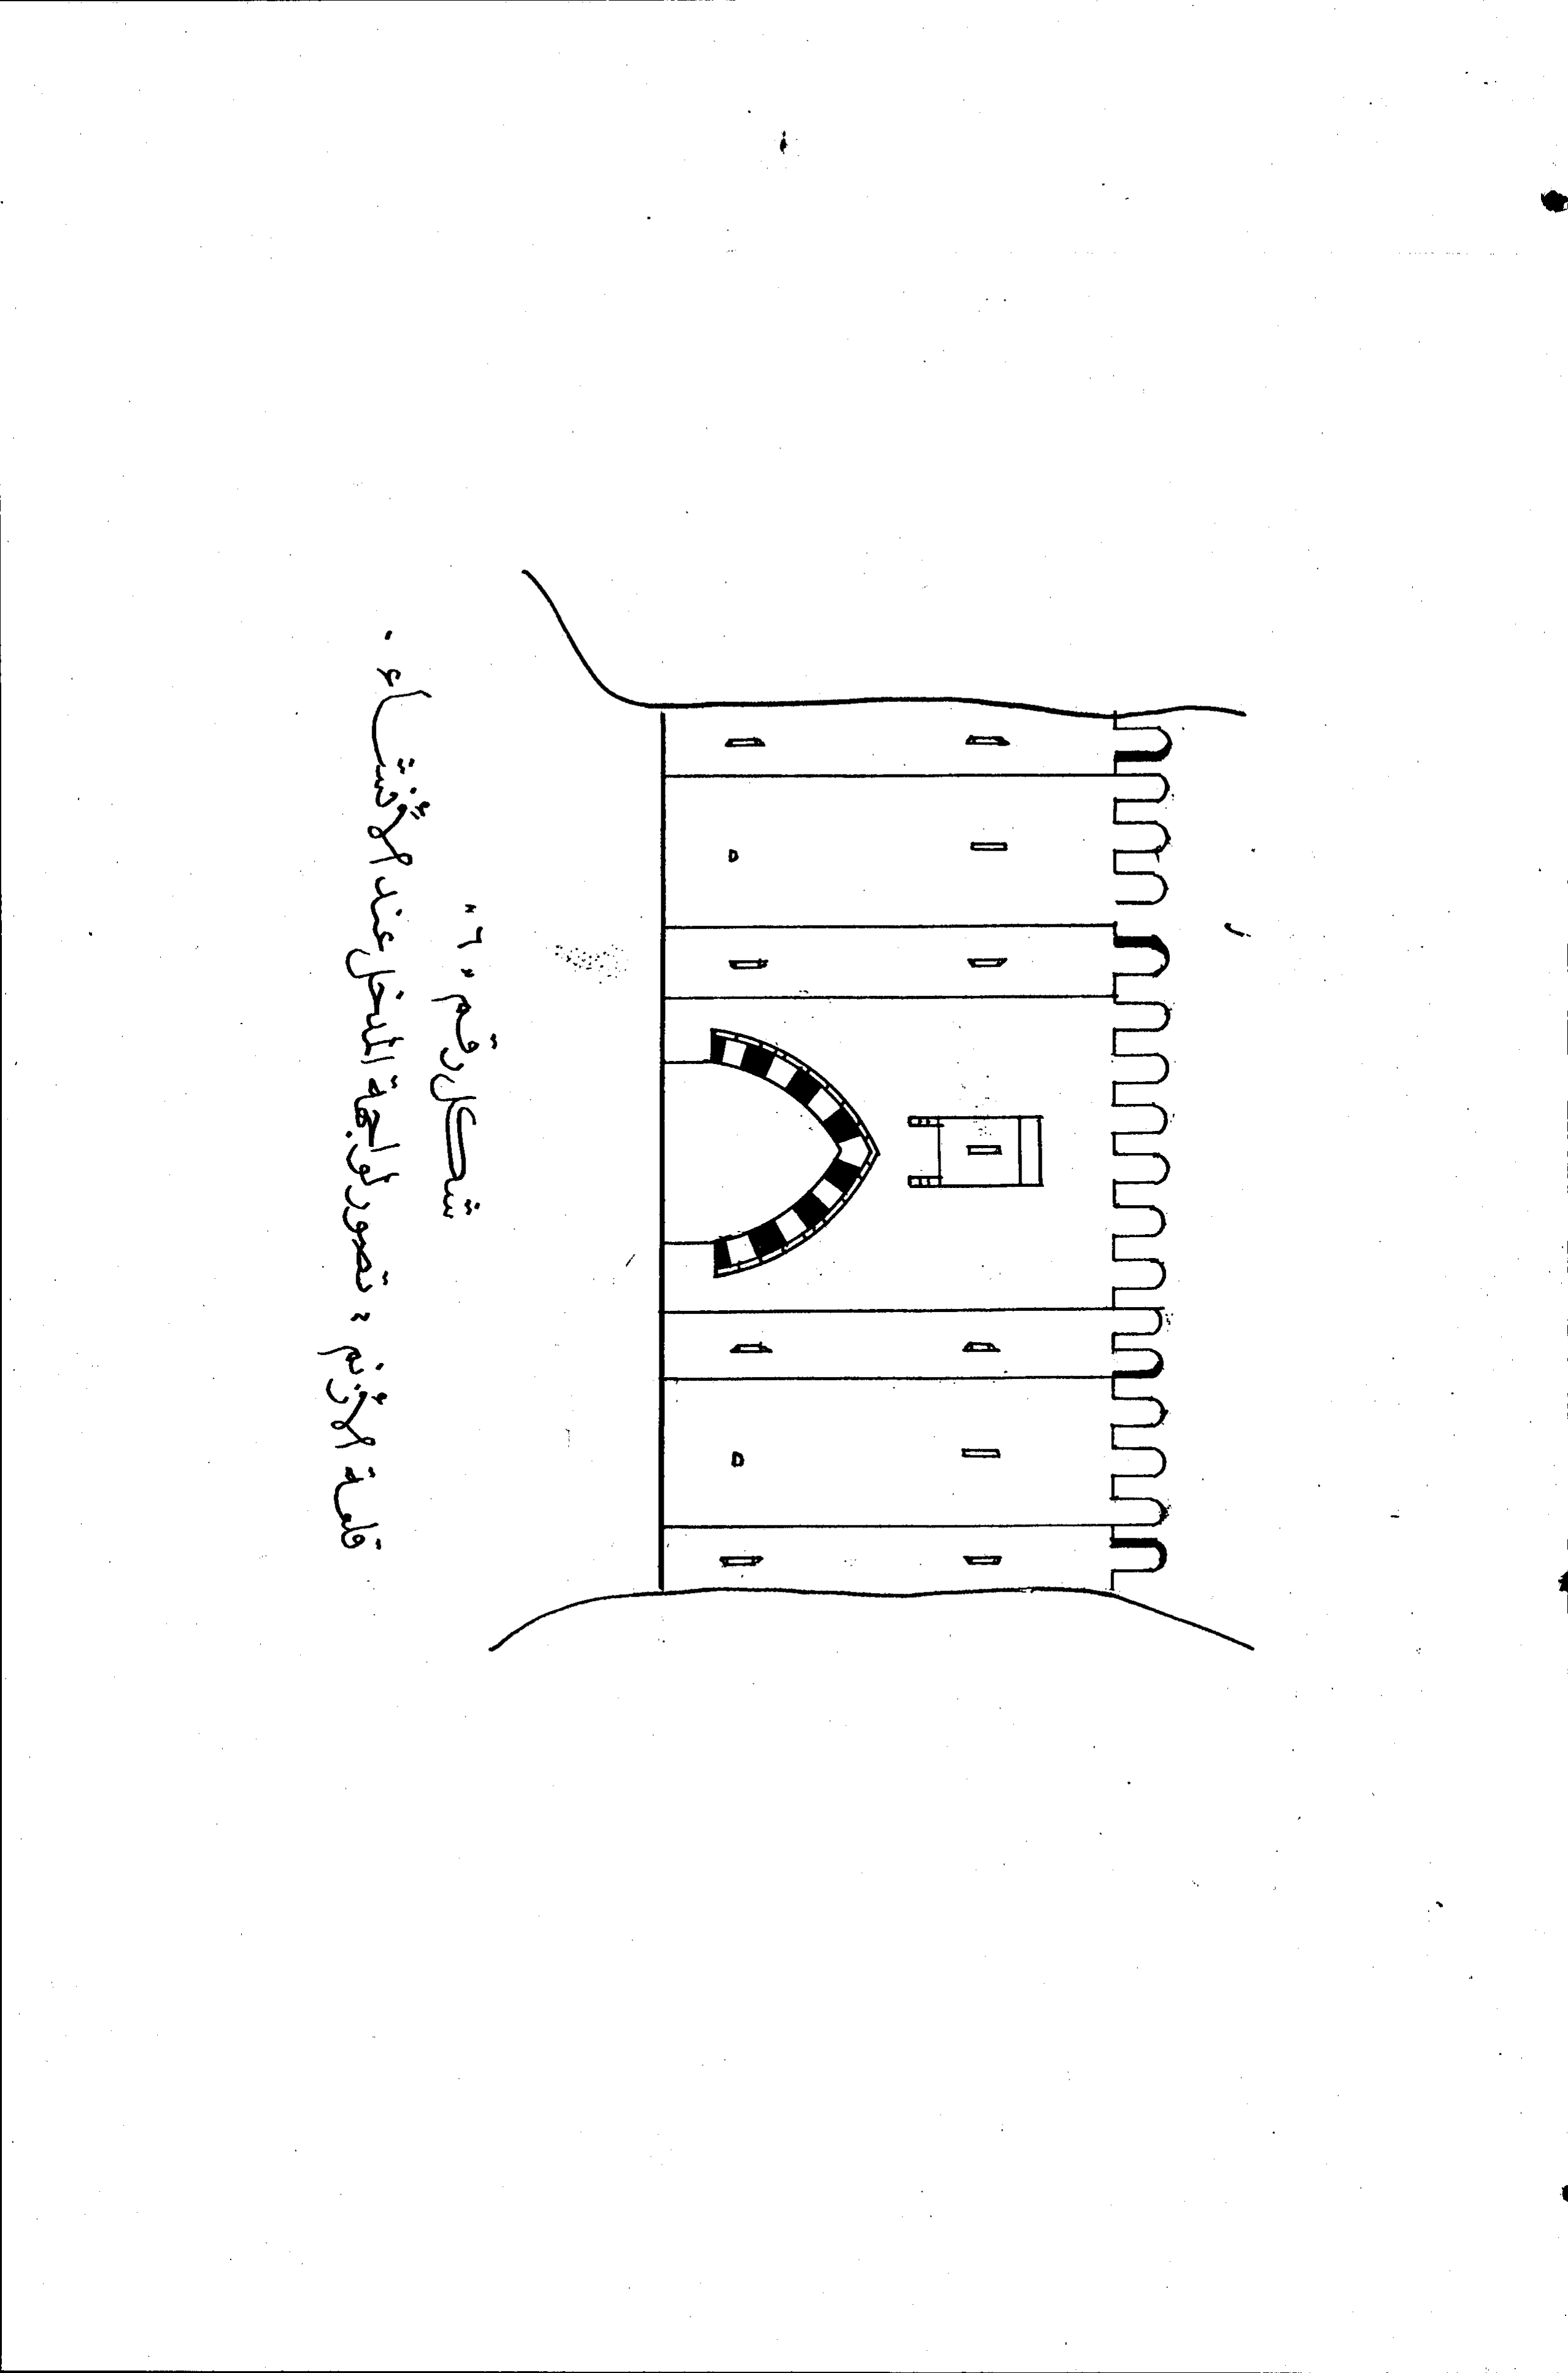 شكل رقم "٦"
قلعة الأزنم : تصور لواجهة المدخل عند الأنشاء .